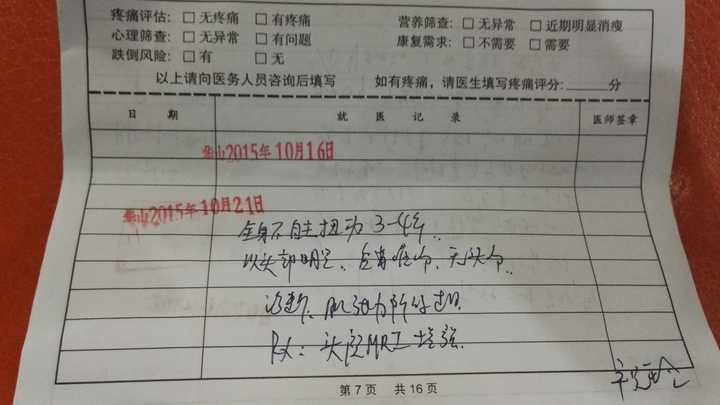 疼痛评估: □ 无疼痛 □ 有疼痛 营养筛查: □ 无异常 □ 近期明显消瘦
心理筛查: □ 无异常 □ 有问题 康复需求: □ 不需要 □ 需要
跌倒风险: □ 有 □ 无
以上请向医务人员咨询后填写 如有疼痛，请医生填写疼痛评分:____分
日 期 就 医 记 录 医师签章
2015年10月16日
2015年10月21日
全身不自主扭动 3-4年
以头部明显、
诊断: 肌张力
Rx: 头颅MRI 增强.
第 7 页 共 16 页